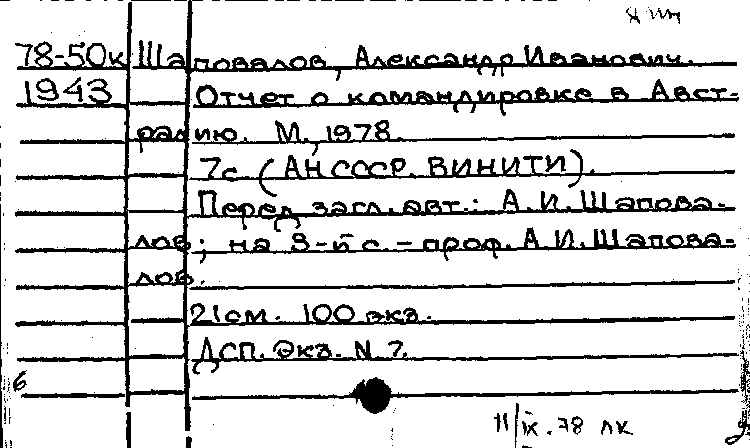 78-50к Шаповалов, Александр Иванович.
1943 Отчет о командировке в Авст-
ралию. М., 1978.
7с (АН СССР. ВИНИТИ).
Перед загл. авт.: А.И. Шапова-
лов; на 3-й с. - проф. А.И. Шапова-
лов.
21см. 100 экз.
ДСП. Экз. N 7.
6
11/IX.78 лк